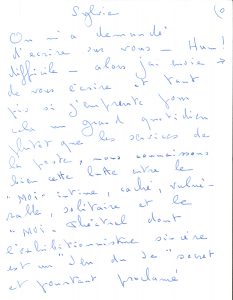 Sylvie
On m'a demandé
d'écrire sur vous - Hum!
difficile - alors j'ai choisi
de vous écrire et tant
pis si j'emprunte pour
cela un grand quotidien
plutôt que les services de
la poste, nous connaissons
bien cette lutte entre le
"Moi" intime, caché, vulné-
rable, solitaire et le
"Moi" théâtral dont
l'exhibitionnisme sincère
est un "Jeu du Je" secret
et pourtant proclamé